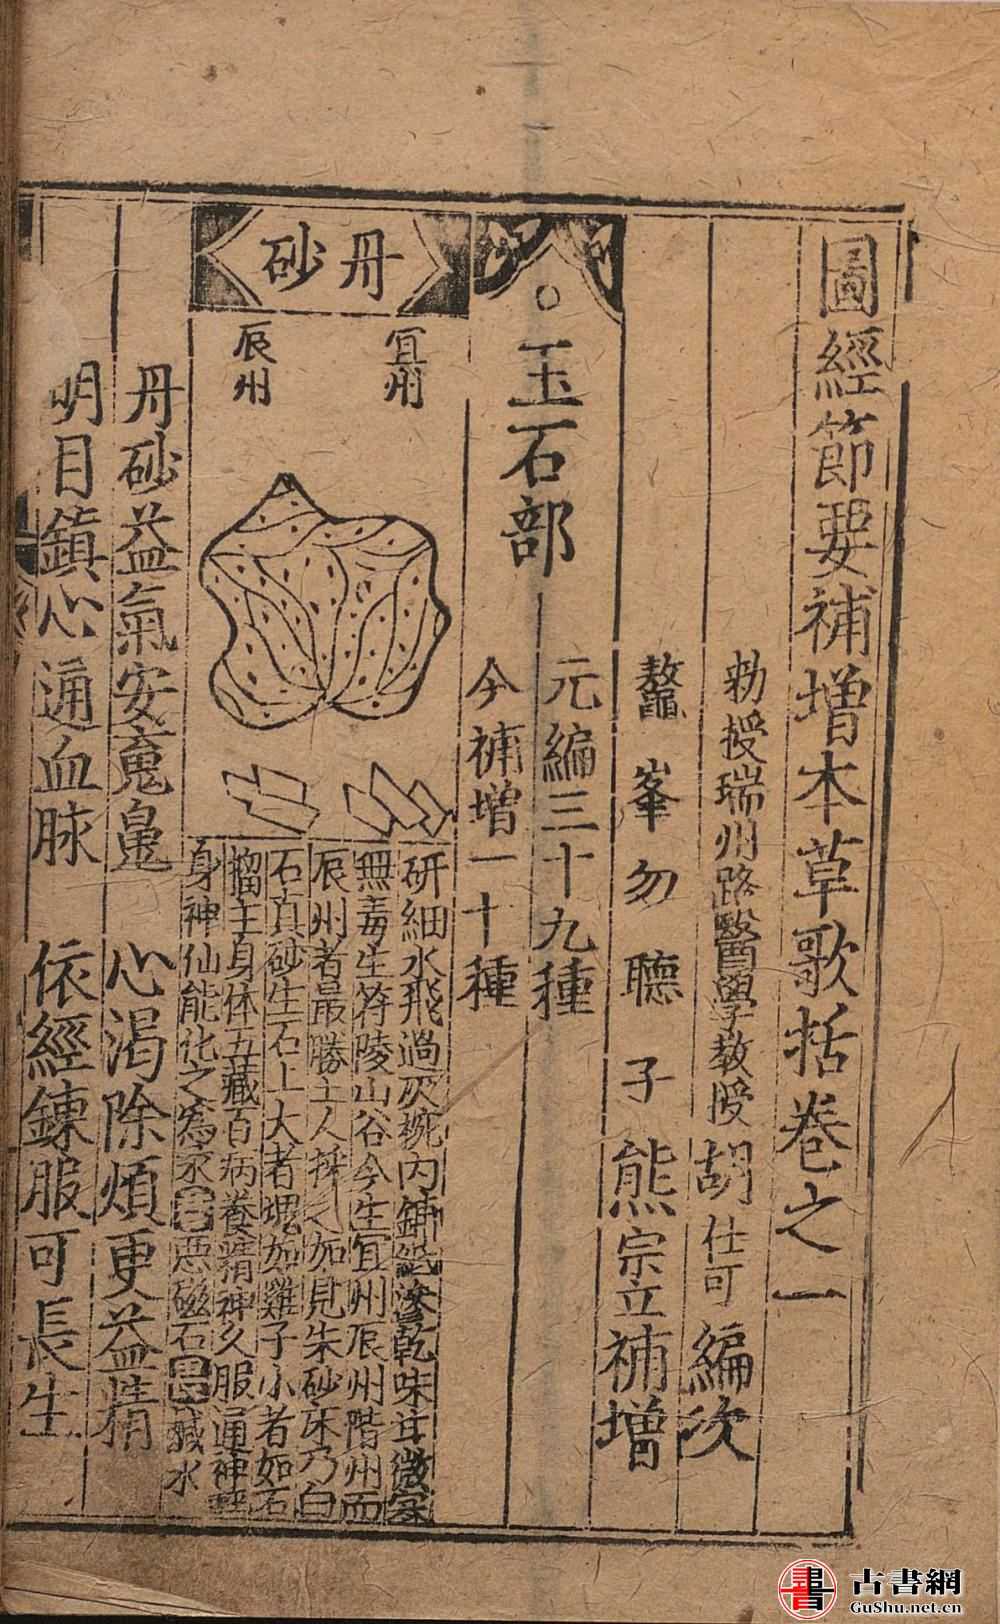 圖經節要補增本草歌括卷之一
勑授瑞州路醫學教授胡仕可編次
鼇峯勿聽子熊宗立補增
○玉石部
元編三十九種
今補增一十種
丹砂
宜州
辰州
研細水飛過灰椀內鋪紙滲乾味甘微寒
無毒生符陵山谷今生宜州辰州階州而
辰州者最勝土人採之如見朱砂床乃白
石真砂生石上大者塊如雞子小者如石
榴主身体五藏百病養精神久服通神
身神仙能化之為汞 惡磁石畏鹹水
丹砂益氣安魂魄 心渴除煩更益精
明目鎮心通血脉 依經鍊服可長生
書
古書網
GuShu.net.cn